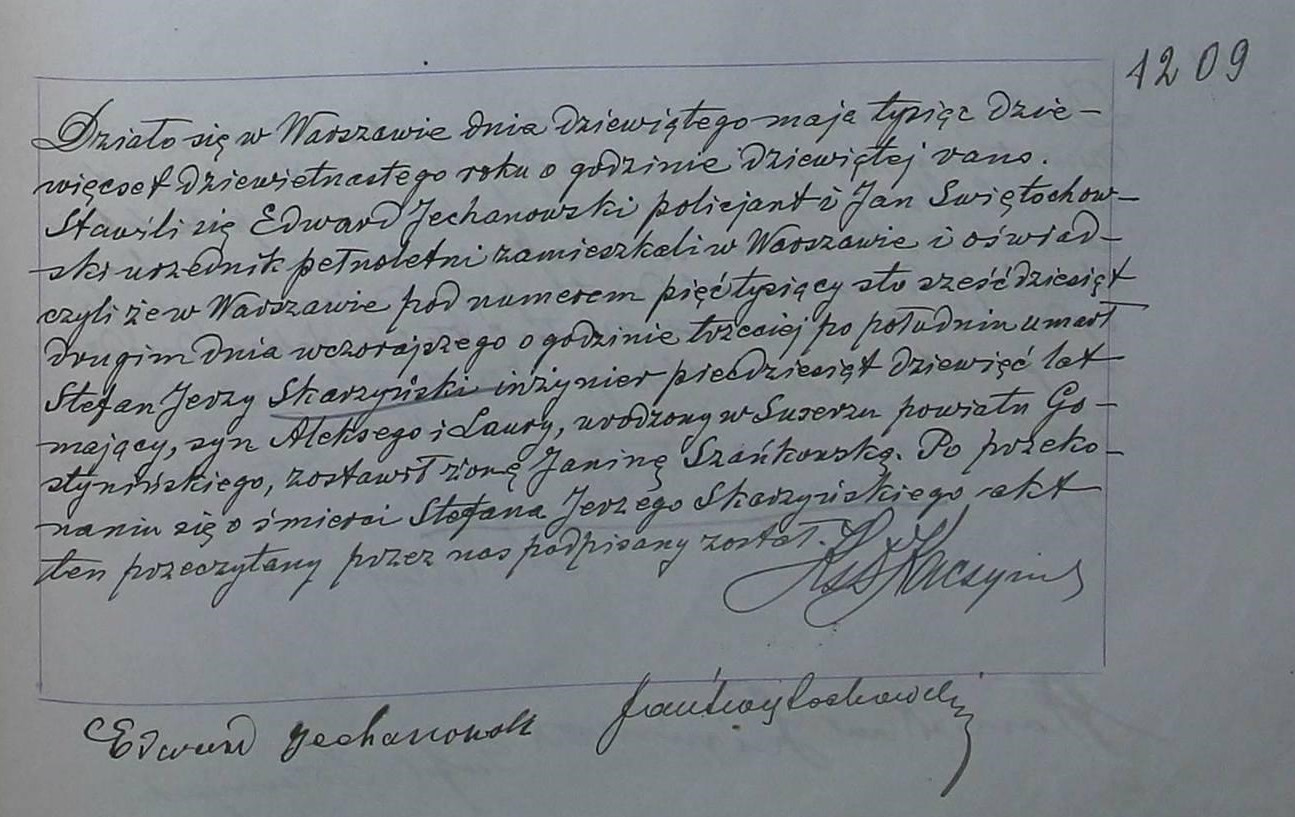 1209
Działo się w Warszawie dnia dziewiątego maja tysiąc dzie-
więcset dziewiętnastego roku o godzinie dziewiątej rano.
Stawili się Edward Jechanowski policjant i Jan Swiętochow-
ski urzędnik pełnoletni zamieszkali w Warszawie i oświad-
czyli że w Warszawie pod numerem pięć tysięcy sto sześćdziesiąt
drugim dnia wczorajszego o godzinie trzeciej po południu umarł
Stefan Jerzy Skarzyński inżynier piećdziesiąt dziewięć lat
mający, syn Aleksego i Laury, urodzony w Suserzu powiatu Go-
stynińskiego, zostawił żonę Janinę Szańkowską. Po przeko-
naniu się o śmierci Stefana Jerzego Skarzyńskiego akt
ten przeczytany przez nas podpisany został.
Edward Jechanowski